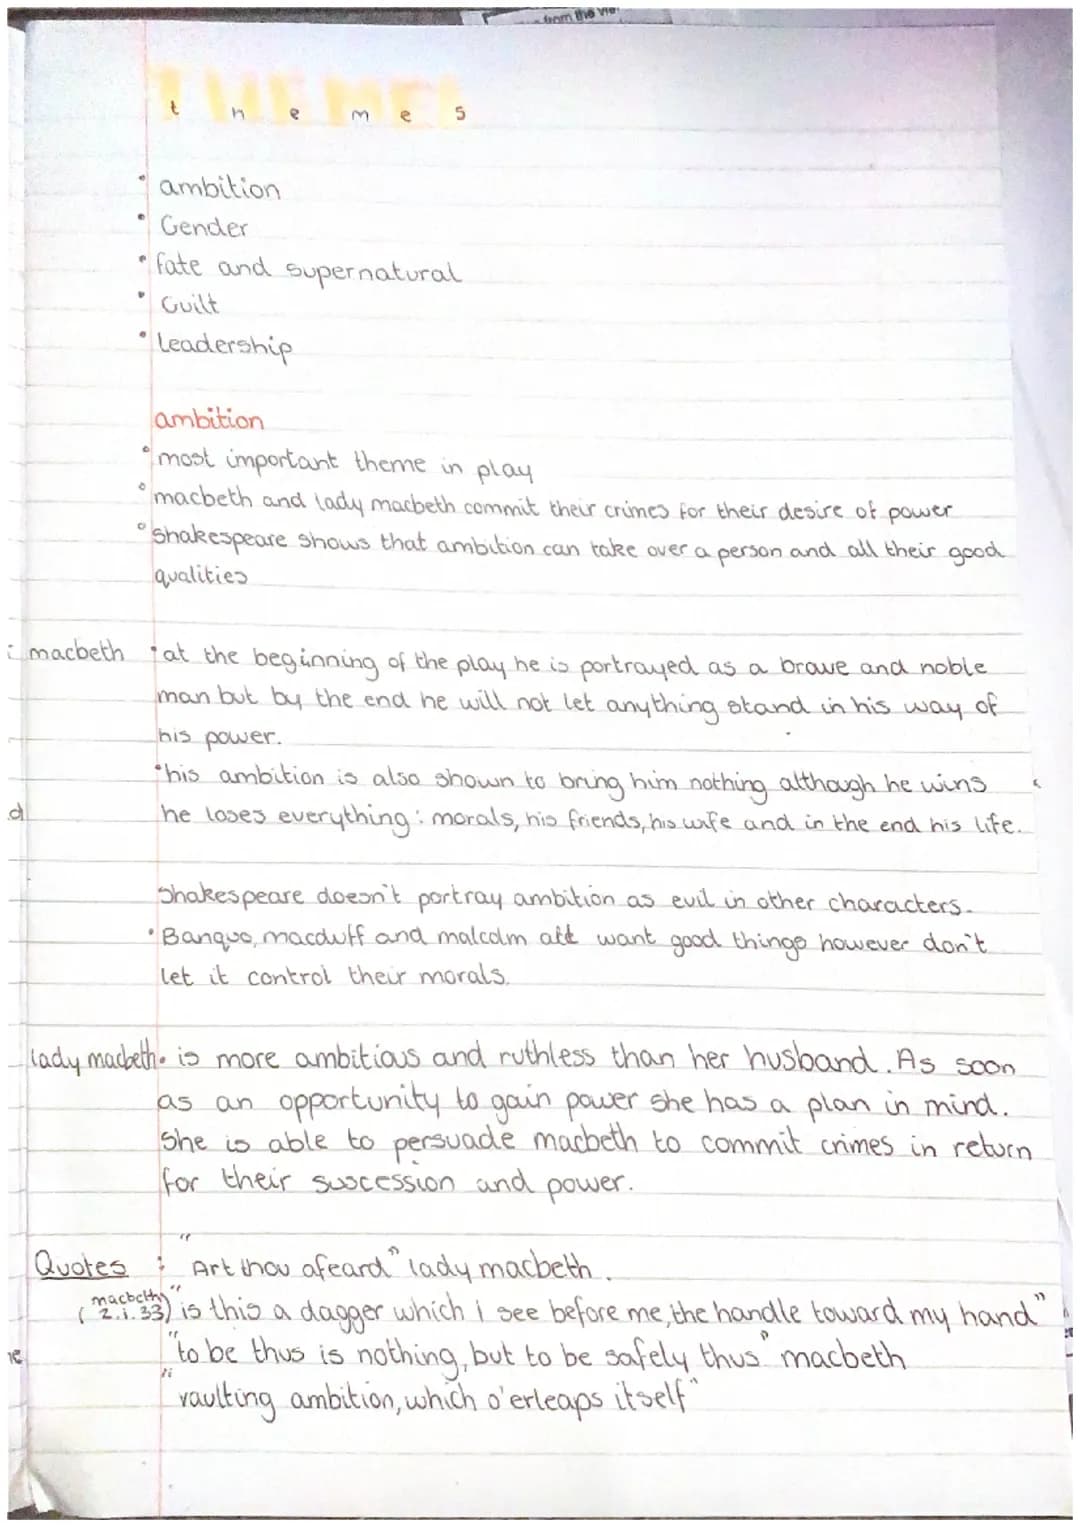 from the vie
THEMES
themes
• ambition
• Gender
• fate and supernatural
• Guilt
• Leadership
ambition
• most important theme in play
• macbeth and lady macbeth commit their crimes for their desire of power
• Shakespeare shows that ambition can take over a person and all their good
qualities
: macbeth • at the beginning of the play he is portrayed as a brave and noble
man but by the end he will not let anything stand in his way of
his power.
• his ambition is also shown to bring him nothing although he wins
d he loses everything: morals, his friends, his wife and in the end his life.
Shakespeare doesn't portray ambition as evil in other characters.
• Banquo, macduff and malcolm all want good things however don't
let it control their morals.
lady macbeth • is more ambitious and ruthless than her husband. As soon
as an opportunity to gain power she has a plan in mind.
She is able to persuade macbeth to commit crimes in return
for their suscession and power.
Quotes : "Art thou afeard" lady macbeth.
(macbeth 2.i.33) "is this a dagger which I see before me, the handle toward my hand"
"to be thus is nothing, but to be safely thus" macbeth
"vaulting ambition, which o'erleaps itself"